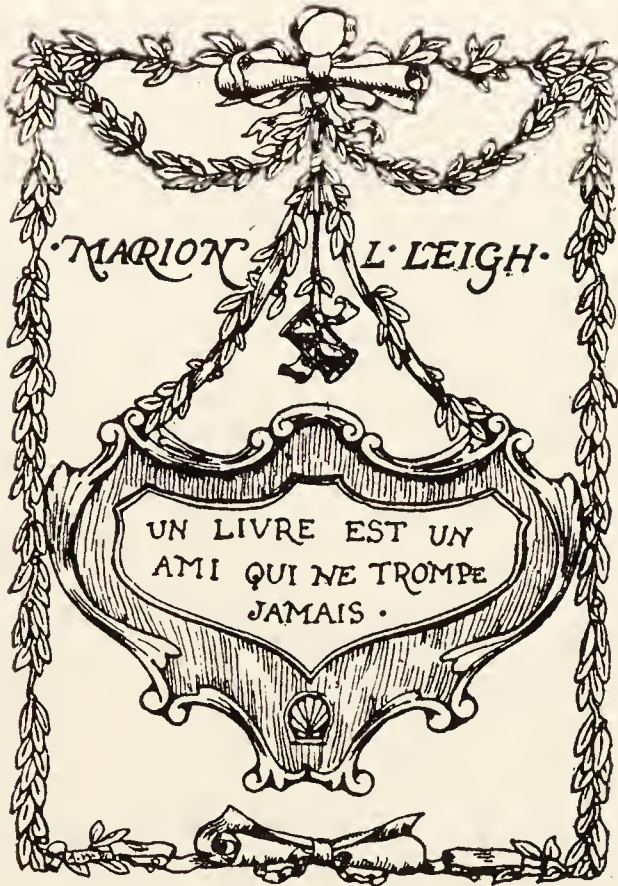 ·MARION L·LEIGH·
UN LIVRE EST UN
AMI QUI NE TROMPE
JAMAIS ·